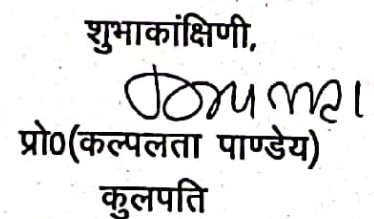 शुभाकांक्षिणी,
प्रो0(कल्पलता पाण्डेय)
कुलपति